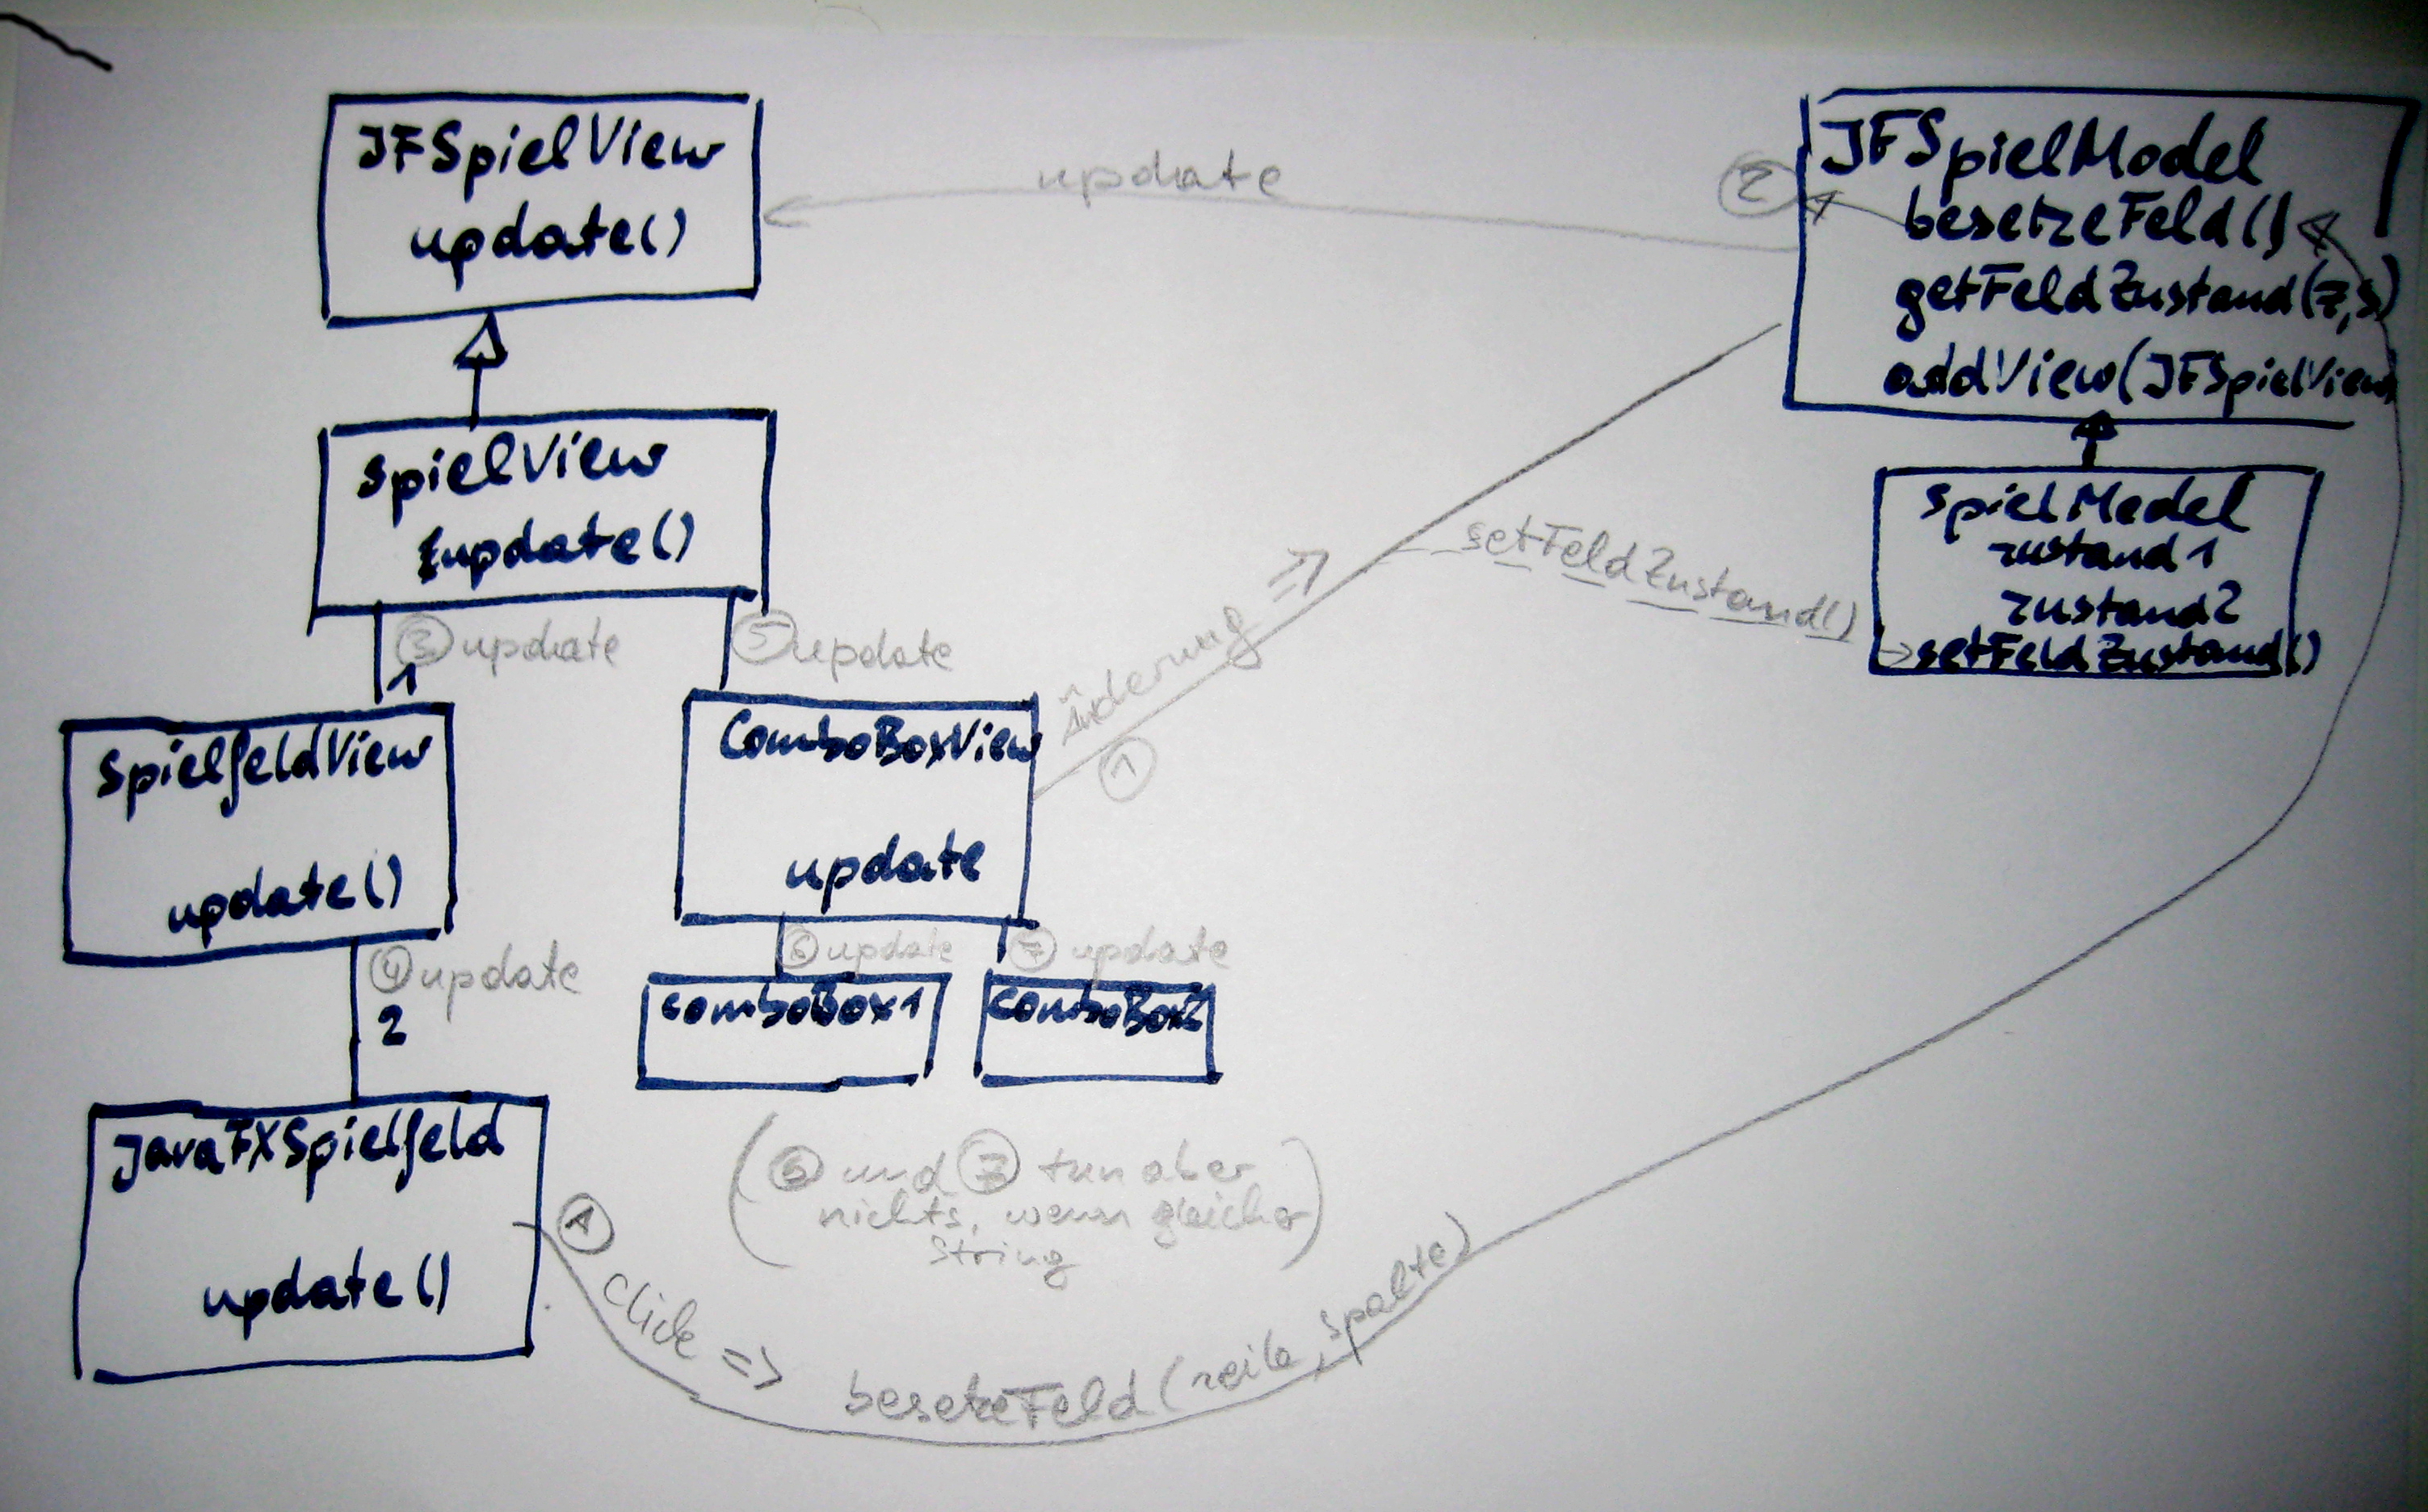 JFSpielView
update()
update
2
JFSpielModel
besetzeFeld()
getFeldZustand(z,s)
addView(JFSpielView)
SpielView
update()
3 update
1
5 update
SpielModel
zustand1
zustand2
setFeldZustand()
setFeldZustand()
Änderung =>
1
SpielfeldView
update()
ComboBoxView
update
4 update
2
6 update
7 update
comboBox1
comboBox2
JavaFXSpielfeld
update()
(6 und 7 tun aber
nichts, wenn gleicher
String)
1 click => besetzeFeld(zeile, spalte)